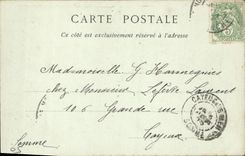 CARTE POSTALE
Ce côté est exclusivement réservé à l'adresse
Mademoiselle G Hannegues
chez Monsieur Lefevre Laurent
106 Grande rue
Cayeux
Somme
CAYEUX